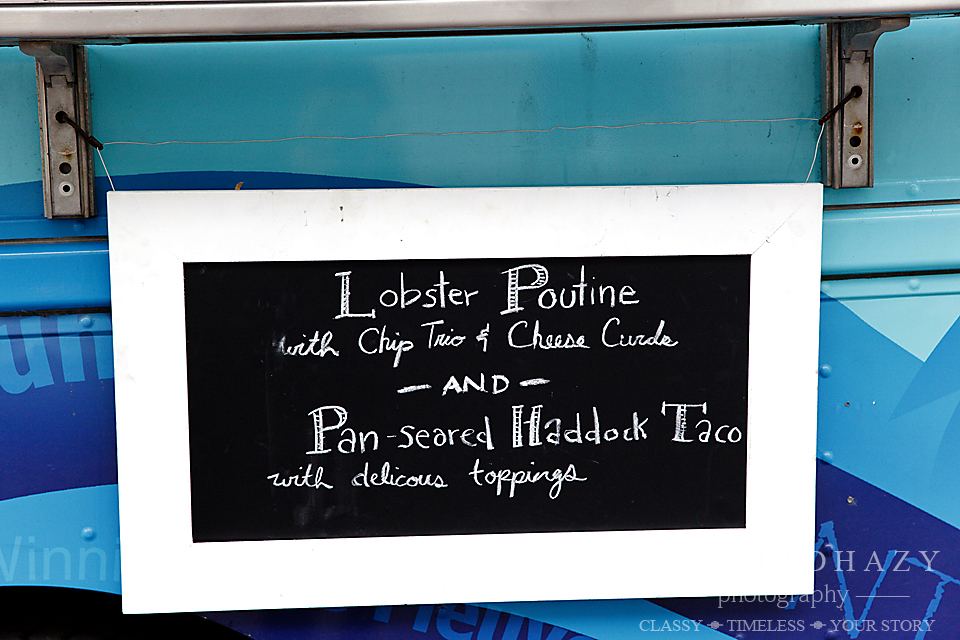 Lobster Poutine
with Chip Trio & Cheese Curds
- AND -
Pan-seared Haddock Taco
with delicous toppings
Winni
HAZY
photography
CLASSY TIMELESS YOUR STORY